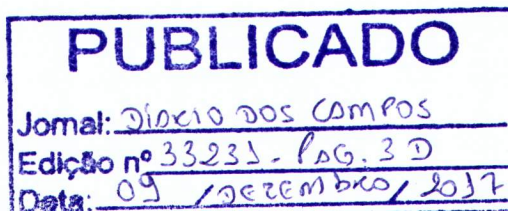 PUBLICADO
Jornal: DIÁRIO DOS CAMPOS
Edição nº 33231. PAG. 3 D
Data: 09 / DEZEMBRO / 2017